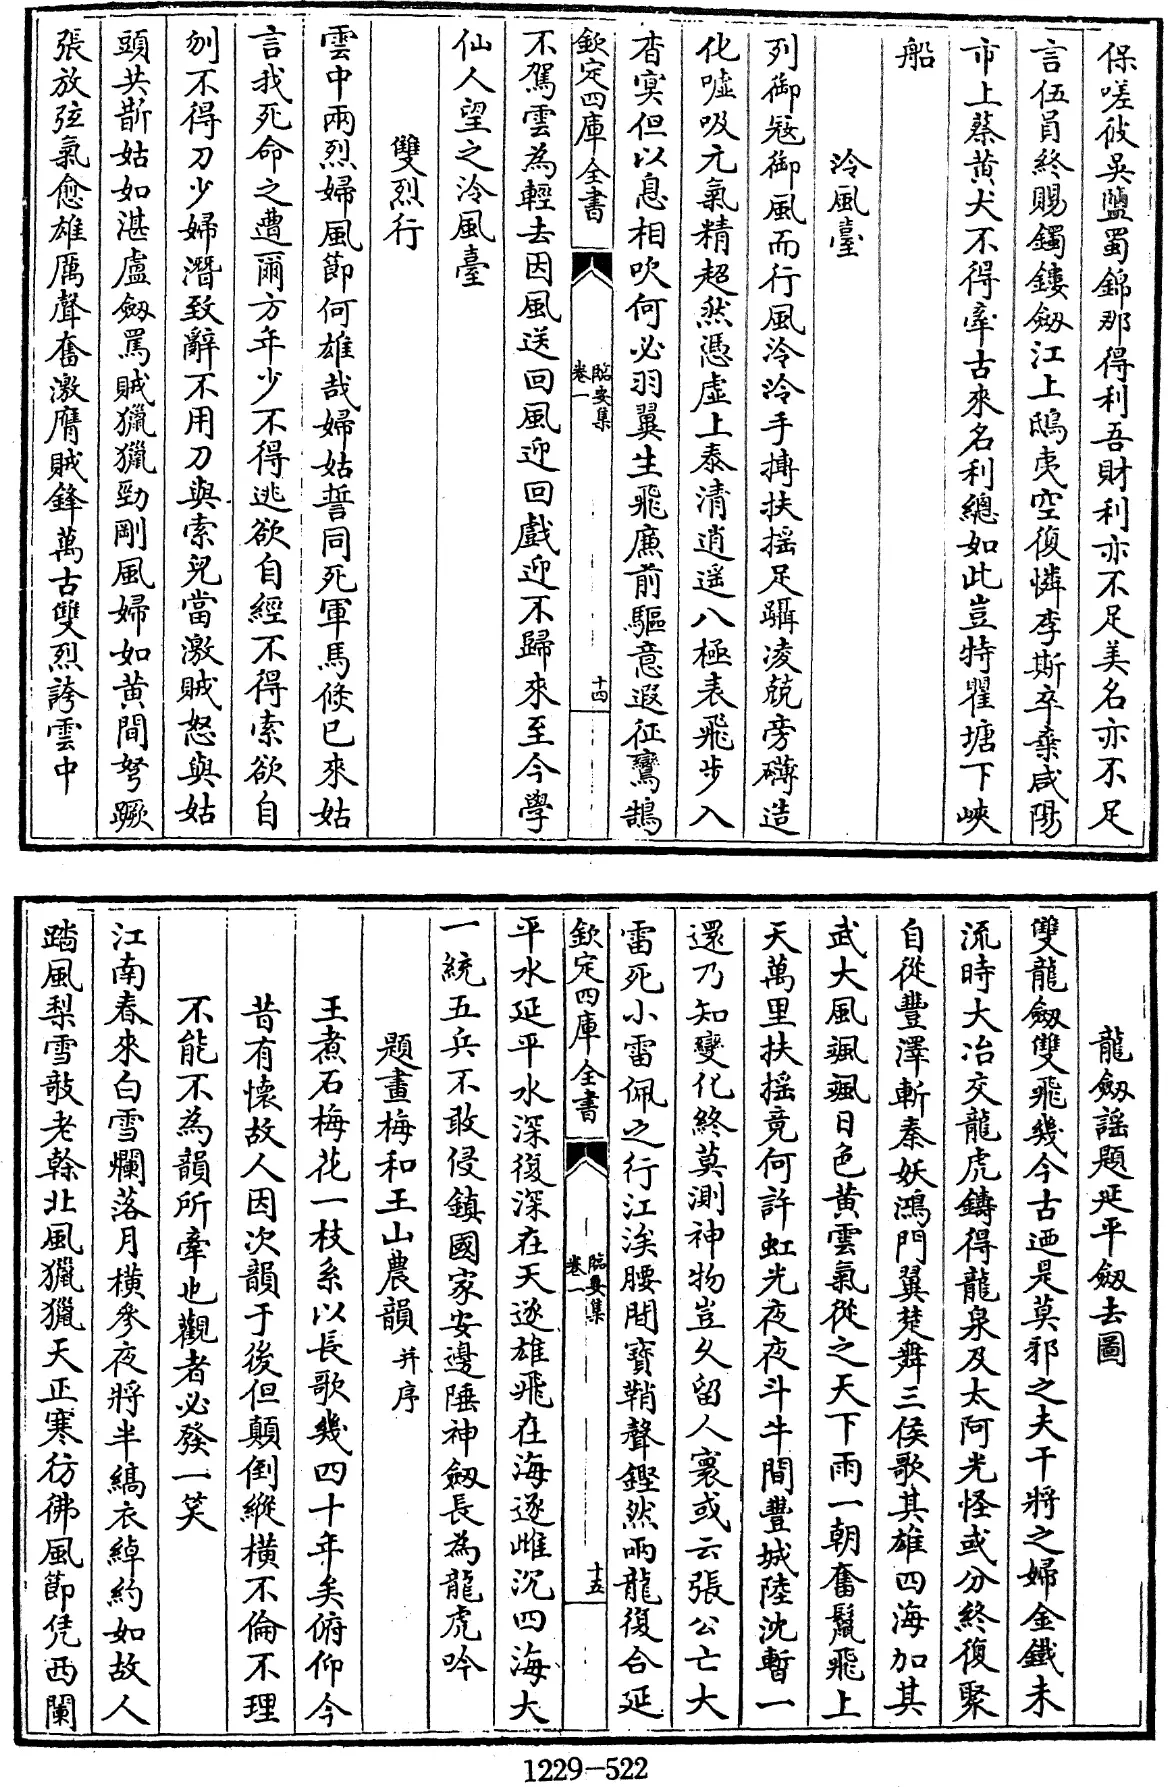 保嗟彼吳鹽蜀錦那得利吾財利亦不足美名亦不足
言伍員終賜鐲鏤劔江上鴟夷空復憐李斯卒棄咸陽
市上蔡黄犬不得牽古來名利總如此豈特瞿塘下峽
船
泠風臺
列御寇御風而行風泠泠手摶扶摇足躡凌兢旁礴造
化噓吸元氣精超然憑虛上泰清逍遥八極表飛步入
杳冥但以息相吹何必羽翼生飛廉前驅意遐征鸞鵠
欽定四庫全書
臨安集
卷一
十四
不駕雲為輕去因風送回風迎回戲迎不歸來至今學
仙人望之泠風臺
雙烈行
雲中兩烈婦風節何雄哉婦姑誓同死軍馬倐已來姑
言我死命之遭爾方年少不得逃欲自經不得索欲自
刎不得刀少婦潛致辭不用刀與索兒當激賊怒與姑
頭共斮姑如湛盧劔罵賊獵獵勁剛風婦如黄間弩蹶
張放弦氣愈雄厲聲奮激膺賊鋒萬古雙烈誇雲中
龍劔謡題延平劔去圖
雙龍劔雙飛幾今古迺是莫邪之夫干將之婦金鐵未
流時大冶交龍虎鑄得龍泉及太阿光怪或分終復聚
自從豐澤斬秦妖鴻門翼楚舞三侯歌其雄四海加其
武大風颯颯日色黄雲氣從之天下雨一朝奮鬛飛上
天萬里扶摇竟何許虹光夜夜斗牛間豐城陸沈暫一
還乃知變化終莫測神物豈久留人寰或云張公亡大
雷死小雷佩之行江涘腰間寶鞘聲鏗然兩龍復合延
欽定四庫全書
臨安集
卷一
十五
平水延平水深復深在天遂雄飛在海遂雌沉四海大
一統五兵不敢侵鎮國家安邊陲神劔長為龍虎吟
題畫梅和王山農韻并序
王煮石梅花一枝系以長歌幾四十年矣俯仰今
昔有懷故人因次韻于後但顛倒縱横不倫不理
不能不為韻所牽也觀者必發一笑
江南春來白雪爛落月横參夜將半縞衣綽約如故人
踏風梨雪敲老榦北風獵獵天正寒彷彿風節凭西闌
1229—522